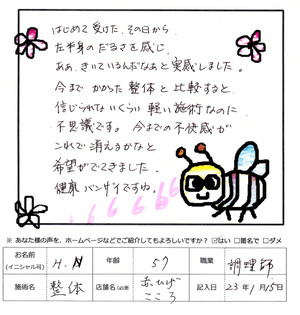 はじめて受けた、その日から
左半身のだるさを感じ、
ああ、きいているんだなあと実感しました。
今までかかった整体と比較すると
信じられないくらい軽い施術なのに
不思議です。今までの不快感が
これで消えるかなと
希望がでてきました。
健康バンザイですね。
※ あなた様の声を、ホームページなどでご紹介してもよろしいですか？ ☑はい □匿名で □ダメ
お名前(イニシャル可) H.N 年齢 57 職業 調理師
施術名 整体 店舗名(必須) 赤ひげこころ 記入日 23年1月15日